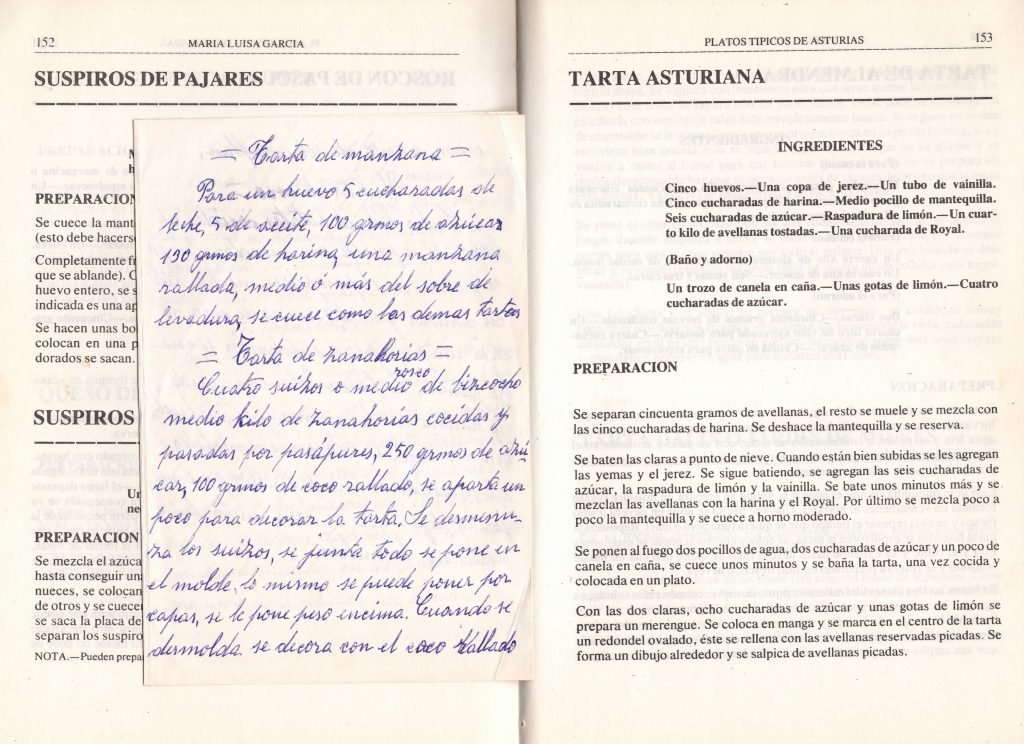 152
MARIA LUISA GARCIA
SUSPIROS DE PAJARES
PREPARACION
Se cuece la mant
(esto debe hacers
Completamente f
que se ablande). C
huevo entero, se s
indicada es una ap
Se hacen unas bo
colocan en una p
dorados se sacan.
SUSPIROS
Un
ne
PREPARACION
Se mezcla el azúca
hasta conseguir un
nueces, se colocan
de otros y se cuecen
se saca la placa de
separan los suspiro
NOTA.—Pueden prepa
= Tarta de manzana =
Para un huevo 5 cucharadas de
leche, 5 de aceite, 100 grmos de azúcar
190 grmos de harina, una manzana
rallada, medio ó más del sobre de
levadura, se cuece como las demas tartas
= Tarta de zanahorias =
Cuatro suizos o medio rosco de bizcocho
medio kilo de zanahorias cocidas y
pasadas por pasápures, 250 grmos de azú-
car, 100 grmos de coco rallado, se aparta un
poco para decorar la tarta. Se desmenu-
za los suizos, se junta todo se pone en
el molde, lo mismo se puede poner por
capas, se le pone peso encima. Cuando se
desmolda se decora con el coco rallado
PLATOS TIPICOS DE ASTURIAS
153
TARTA ASTURIANA
INGREDIENTES
Cinco huevos.—Una copa de jerez.—Un tubo de vainilla.
Cinco cucharadas de harina.—Medio pocillo de mantequilla.
Seis cucharadas de azúcar.—Raspadura de limón.—Un cuar-
to kilo de avellanas tostadas.—Una cucharada de Royal.
(Baño y adorno)
Un trozo de canela en caña.—Unas gotas de limón.—Cuatro
cucharadas de azúcar.
PREPARACION
Se separan cincuenta gramos de avellanas, el resto se muele y se mezcla con
las cinco cucharadas de harina. Se deshace la mantequilla y se reserva.
Se baten las claras a punto de nieve. Cuando están bien subidas se les agregan
las yemas y el jerez. Se sigue batiendo, se agregan las seis cucharadas de
azúcar, la raspadura de limón y la vainilla. Se bate unos minutos más y se
mezclan las avellanas con la harina y el Royal. Por último se mezcla poco a
poco la mantequilla y se cuece a horno moderado.
Se ponen al fuego dos pocillos de agua, dos cucharadas de azúcar y un poco de
canela en caña, se cuece unos minutos y se baña la tarta, una vez cocida y
colocada en un plato.
Con las dos claras, ocho cucharadas de azúcar y unas gotas de limón se
prepara un merengue. Se coloca en manga y se marca en el centro de la tarta
un redondel ovalado, éste se rellena con las avellanas reservadas picadas. Se
forma un dibujo alrededor y se salpica de avellanas picadas.